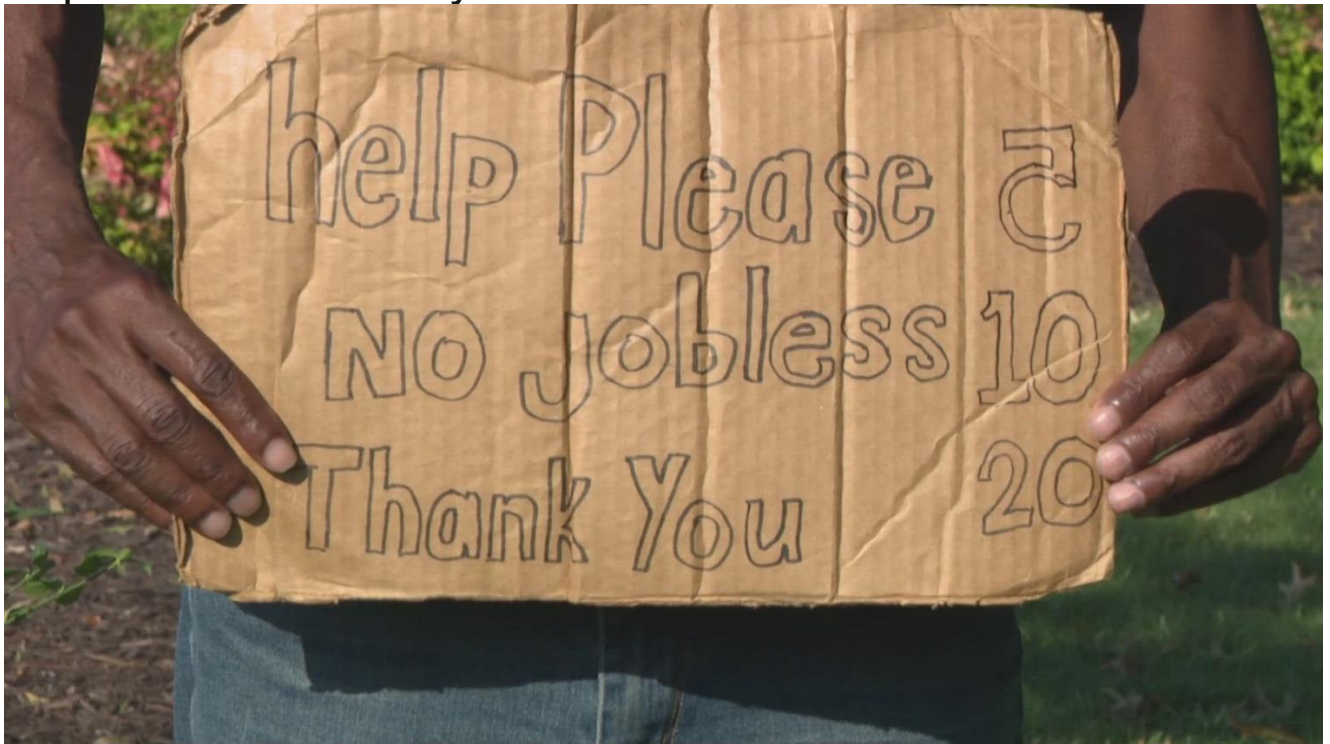 help Please 5
NO jobless 10
Thank You 20